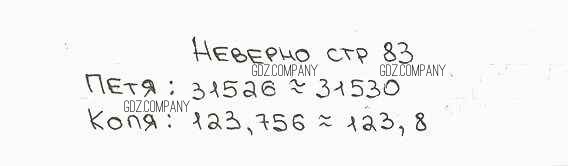 Неверно стр 83
GDZ.COMPANY GDZ.COMPANY
Петя: 31526 ≈ 31530
GDZ.COMPANY
Коля: 123,756 ≈ 123,8